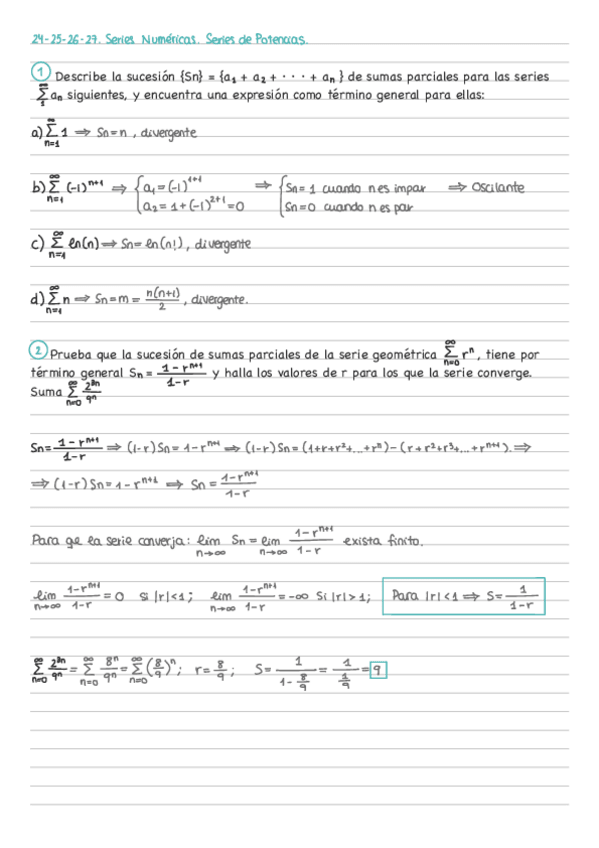 24-25-26-27. Series Numéricas. Series de Potencias.
① Describe la sucesión {Sn} = {a₁ + a₂ + · · · + aₙ} de sumas parciales para las series
∑₁^∞ aₙ siguientes, y encuentra una expresión como término general para ellas:
a) ∑_{n=1}^∞ 1 ⇒ Sn = n , divergente
b) ∑_{n=1}^∞ (-1)ⁿ⁺¹ ⇒ { a₁ = (-1)¹⁺¹ ⇒ { Sn = 1 cuando n es impar ⇒ Oscilante
a₂ = 1 + (-1)²⁺¹ = 0 Sn = 0 cuando n es par
c) ∑_{n=1}^∞ ln(n) ⇒ Sn = ln(n!) , divergente
d) ∑_{n=1}^∞ n ⇒ Sn = m = n(n+1)/2 , divergente.
② Prueba que la sucesión de sumas parciales de la serie geométrica ∑_{n=0}^∞ rⁿ , tiene por
término general Sn = (1 - rⁿ⁺¹)/(1 - r) y halla los valores de r para los que la serie converge.
Suma ∑_{n=0}^∞ 2³ⁿ/9ⁿ
Sn = (1 - rⁿ⁺¹)/(1 - r) ⇒ (1-r) Sn = 1 - rⁿ⁺¹ ⇒ (1-r) Sn = (1+r+r²+...+rⁿ) - (r+r²+r³+...+rⁿ⁺¹). ⇒
⇒ (1-r) Sn = 1 - rⁿ⁺¹ ⇒ Sn = (1-rⁿ⁺¹)/(1-r)
Para qe la serie converja: lim_{n→∞} Sn = lim_{n→∞} (1-rⁿ⁺¹)/(1-r) exista finito.
lim_{n→∞} (1-rⁿ⁺¹)/(1-r) = 0 si |r|<1 ; lim_{n→∞} (1-rⁿ⁺¹)/(1-r) = -∞ Si |r|>1 ; Para |r|<1 ⇒ S = 1/(1-r)
∑_{n=0}^∞ 2³ⁿ/9ⁿ = ∑_{n=0}^∞ 8ⁿ/9ⁿ = ∑_{n=0}^∞ (8/9)ⁿ ; r = 8/9 ; S = 1/(1 - 8/9) = 1/(1/9) = 9